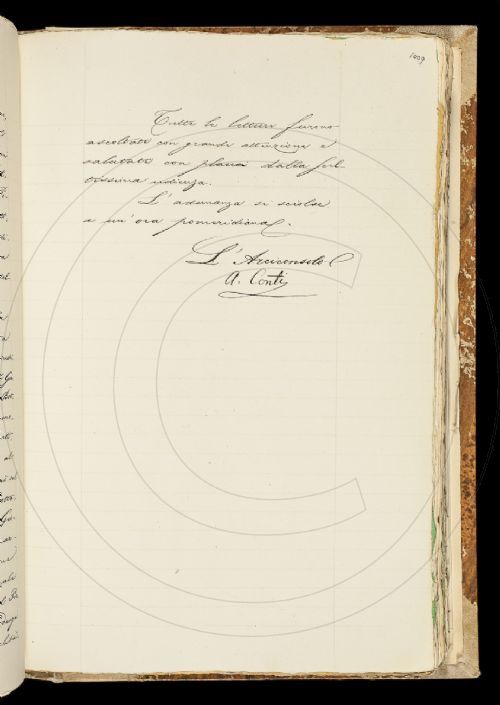 1009
Tutte le letture furono
ascoltate con grande attenzione e
salutate con plausi dalla fol
tissima udienza.
L'adunanza si sciolse
a un'ora pomeridiana.
L'Arciconsolo
A. Conti